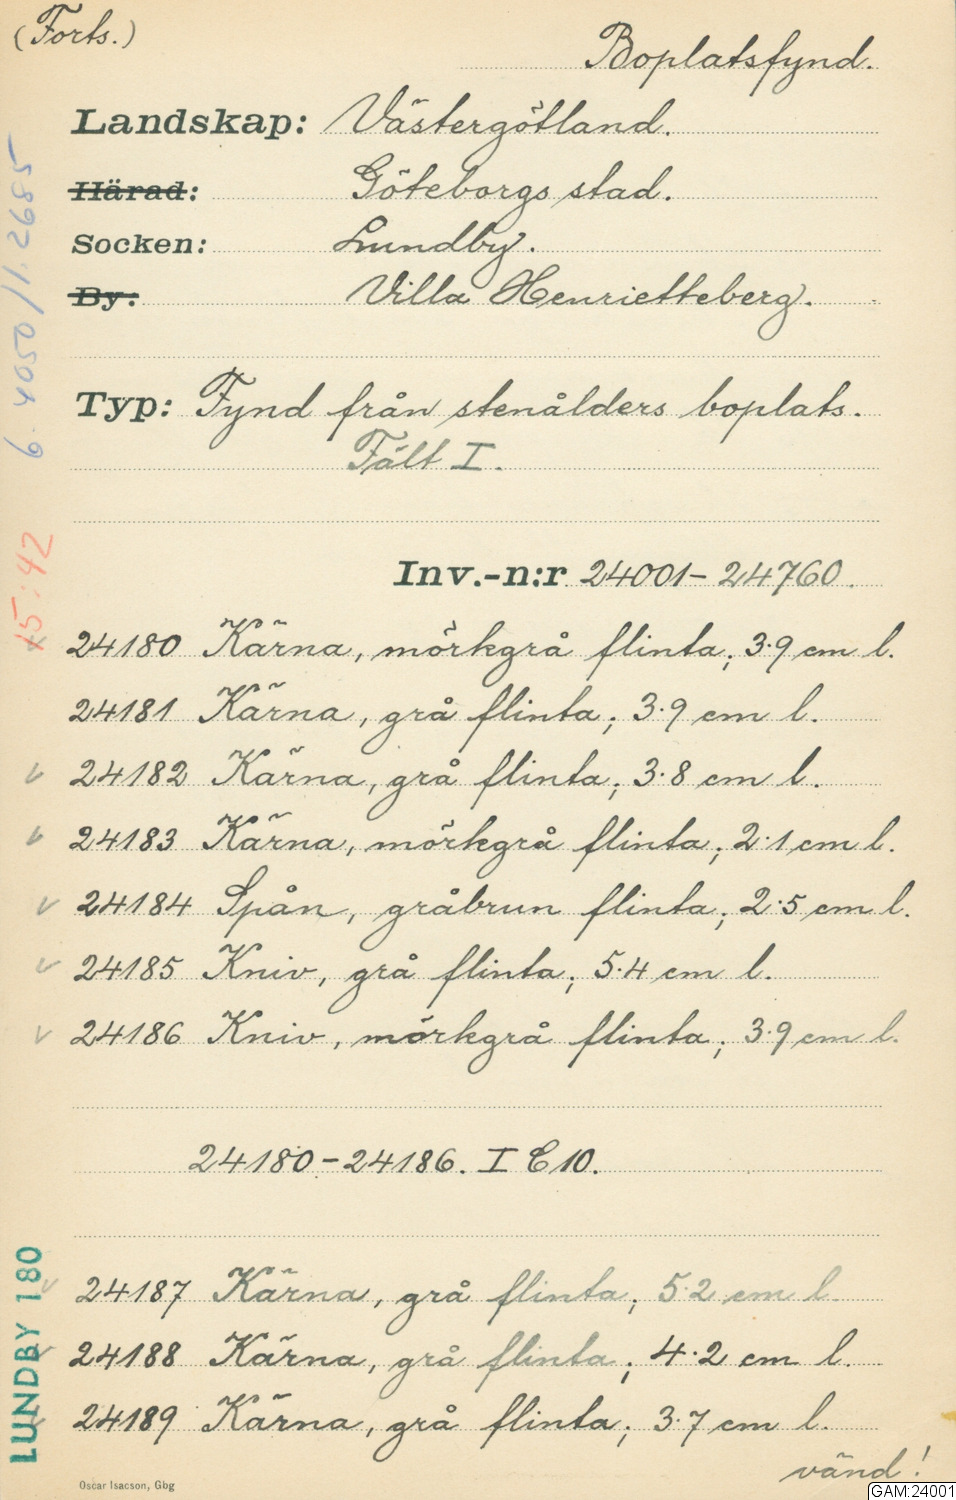 (Forts.)
Boplatsfynd.
Landskap: Västergötland.
Härad: Göteborgs stad.
Socken: Lundby.
By: Villa Henrietteberg.
Typ: Fynd från stenålders boplats.
Fält I.
Inv.-n:r 24001-24760.
24180 Kärna, mörkgrå flinta; 3.9 cm l.
24181 Kärna, grå flinta; 3.9 cm l.
24182 Kärna, grå flinta; 3.8 cm l.
24183 Kärna, mörkgrå flinta; 2.1 cm l.
24184 Spån, gråbrun flinta; 2.5 cm l.
24185 Kniv, grå flinta; 5.4 cm l.
24186 Kniv, mörkgrå flinta; 3.9 cm l.
24180-24186. I C 10.
24187 Kärna, grå flinta; 5.2 cm l.
24188 Kärna, grå flinta; 4.2 cm l.
24189 Kärna, grå flinta; 3.7 cm l.
vänd!
Oscar Isacson, Gbg
GAM:24001
6. 4050/1. 2685
15:42
LUNDBY 180